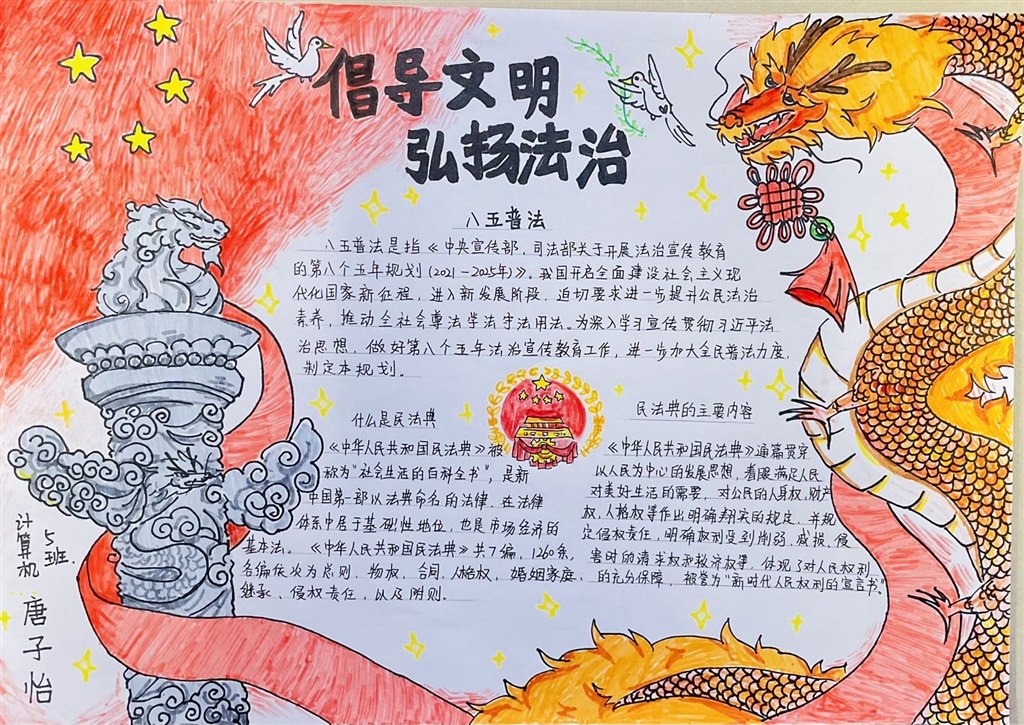 倡导文明
弘扬法治
八五普法
八五普法是指《中央宣传部，司法部关于开展法治宣传教育
的第八个五年规划(2021-2025年)》，我国开启全面建设社会主义现
代化国家新征程，进入新发展阶段，迫切要求进一步提升公民法治
素养，推动全社会尊法学法守法用法。为深入学习宣传贯彻习近平法
治思想，做好第八个五年法治宣传教育工作，进一步加大全民普法力度，
制定本规划。
什么是民法典
《中华人民共和国民法典》被
称为"社会生活的百科全书"，是新
中国第一部以法典命名的法律，在法律
体系中居于基础性地位，也是市场经济的
基本法。《中华人民共和国民法典》共7编，1260条，
各编依次为总则、物权、合同、人格权、婚姻家庭、
继承、侵权责任，以及附则。
民法典的主要内容
《中华人民共和国民法典》通篇贯穿
以人民为中心的发展思想，着眼满足人民
对美好生活的需要，对公民的人身权、财产
权、人格权等作出明确翔实的规定，并规
定侵权责任，明确权利受到削弱、减损、侵
害时的请求权和救济权等，体现了对人民权利
的充分保障，被誉为"新时代人民权利的宣言书"。
计算机
5班.
唐子怡